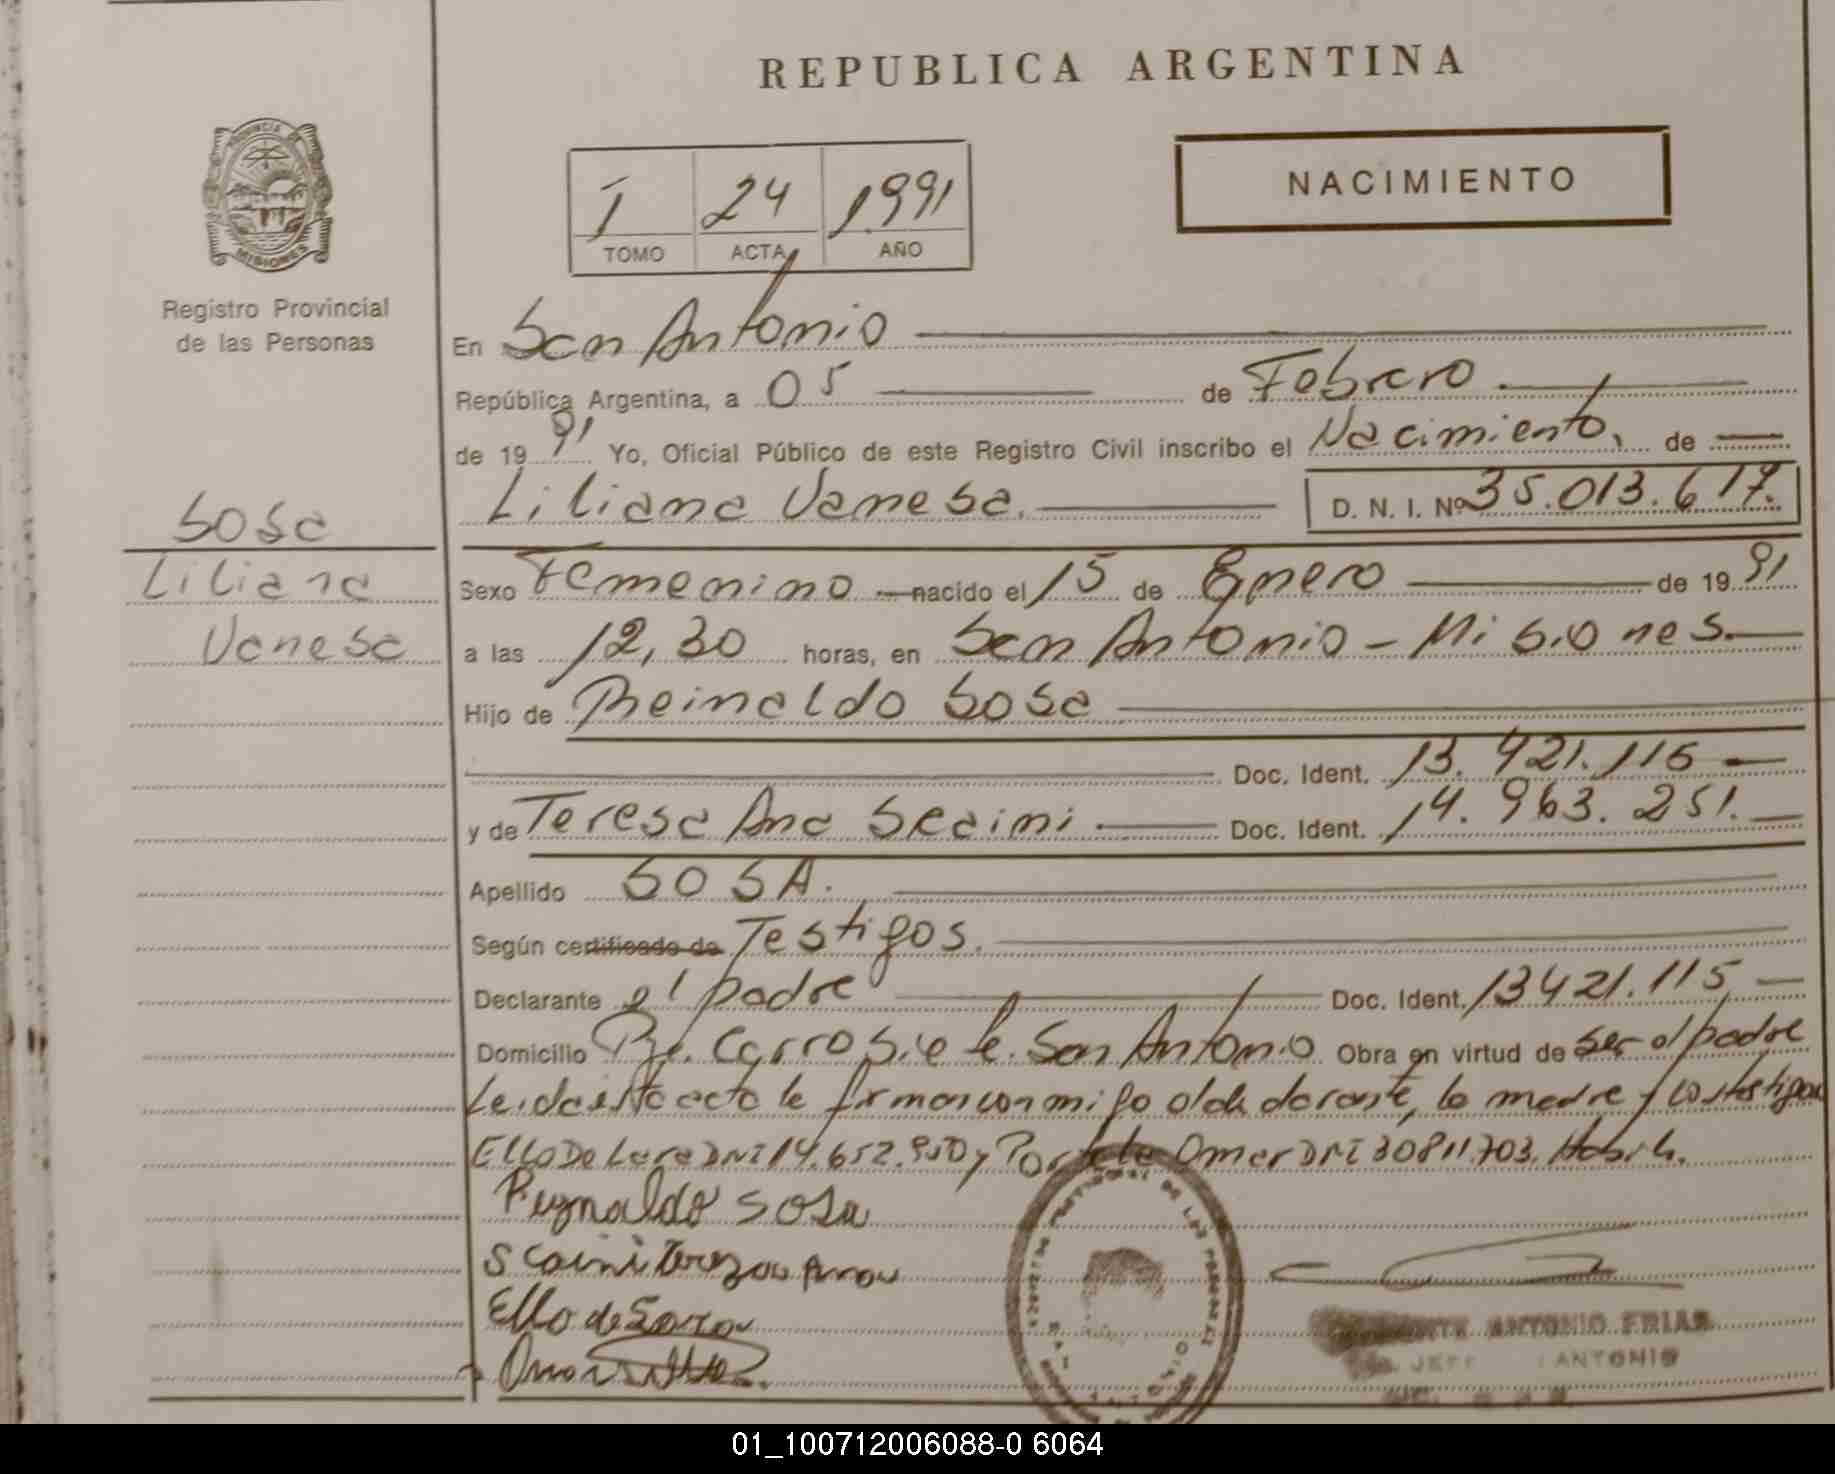 REPUBLICA ARGENTINA
PROVINCIA DE
MISIONES
Registro Provincial
de las Personas
I 24 1991
TOMO ACTA AÑO
NACIMIENTO
En San Antonio
República Argentina, a 05 de Febrero
de 1991 Yo, Oficial Público de este Registro Civil inscribo el Nacimiento, de
Liliana Vanesa. D. N. I. Nº 35.013.617.
Sosa
Liliana
Vanesa
Sexo Femenino nacido el 15 de Enero de 1991
a las 12,30 horas, en San Antonio - Misiones.
Hijo de Reinaldo Sosa
Doc. Ident. 13.421.115
y de Teresa Ana Scaimi Doc. Ident. 14.963.251.
Apellido SOSA.
Según certificado de Testigos.
Declarante el padre Doc. Ident. 13421.115
Domicilio Pje. Carro San Antonio Obra en virtud de ser el padre
Leida esta acta la firman conmigo el declarante, la madre y los testigos
Ello De Lara DNI 14.652.950 y Omar DNI 30811.703. Habil.
Reynaldo Sosa
Scaini Ana
Ello de Lara
ANTONIO FRIAS
JEFE ANTONIO
01_100712006088-0 6064